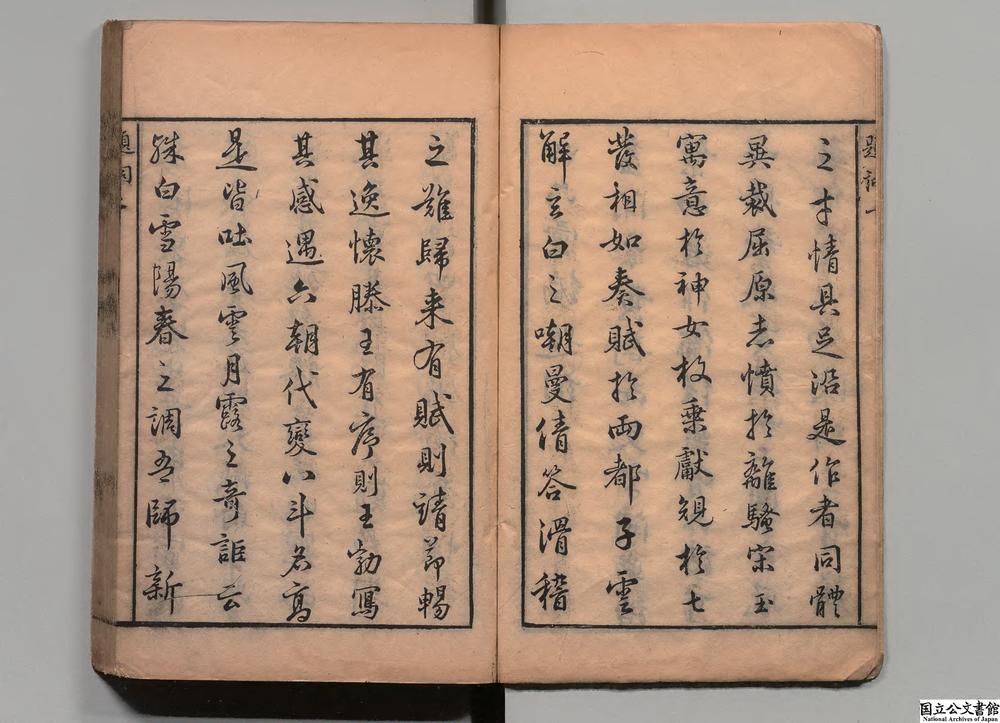 之才情具足沿是作者同體
異裁屈原志憤於離騷宋玉
寓意於神女枚乗獻規於七
發相如奏賦於両都子雲
解玄白之嘲曼倩答滑稽
之難歸来有賦則靖節暢
其逸懷滕王有序則王勃寫
其感遇六朝代變八斗名高
是皆吐風雲月露之奇詎云
殊白雪陽春之調吾師新
題詞
国立公文書館
National Archives of Japan